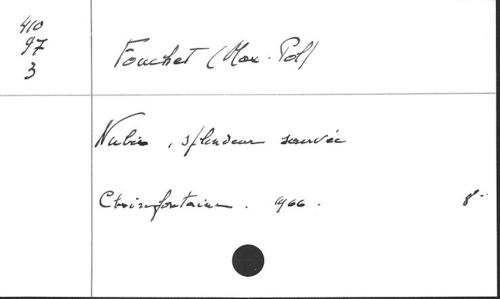 410
97
3
Fouchet (Max-Pol)
Nubie, splendeur sauvée
Clairefontaine. 1966. 8°